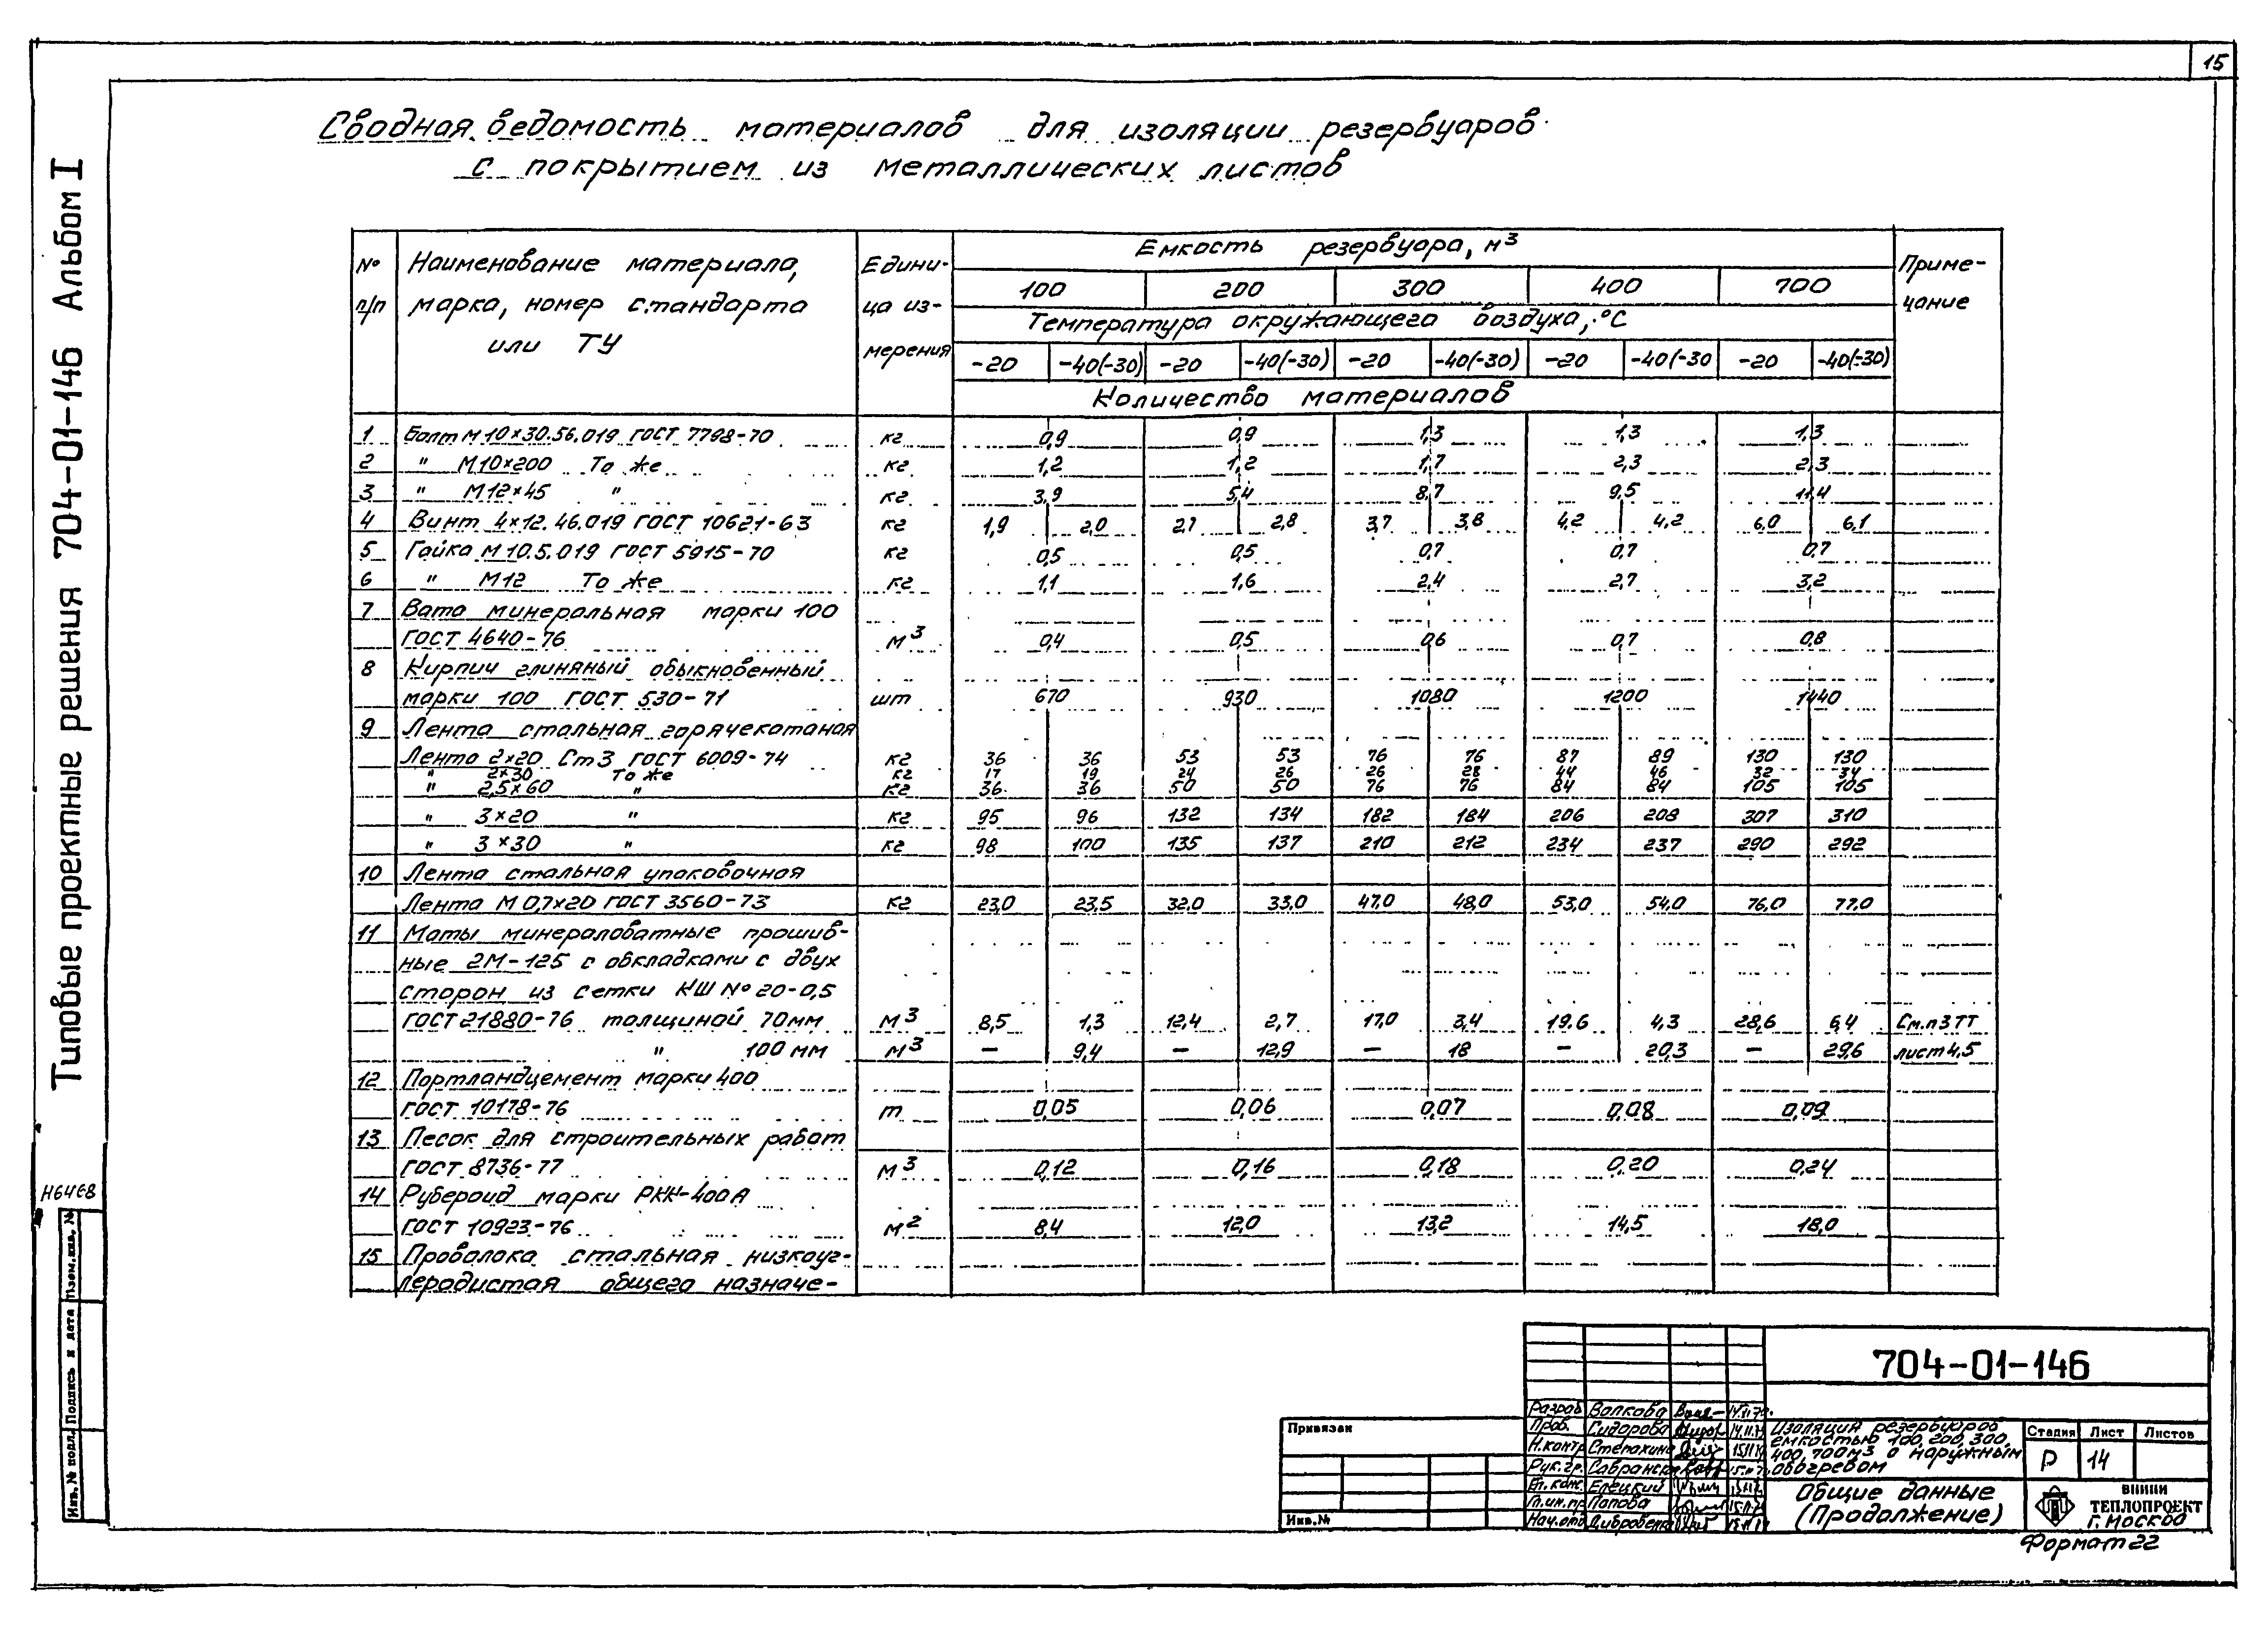 15
Типовые проектные решения 704-01-146 Альбом I
Сводная ведомость материалов для изоляции резервуаров
с покрытием из металлических листов
№ п/п Наименование материала, марка, номер стандарта или ТУ Едини-ца из-мерения Емкость резервуара, м³ Приме-чание
100 200 300 400 700
Температура окружающего воздуха, °С
-20 -40(-30) -20 -40(-30) -20 -40(-30) -20 -40(-30 -20 -40(-30)
Количество материалов
1 Болт М10×30.56.019 ГОСТ 7798-70 кг 0,9 0,9 1,3 1,3 1,3
2 " М10×200 То же кг 1,2 1,2 1,7 2,3 2,3
3 " М12×45 " кг 3,9 5,4 8,7 9,5 11,4
4 Винт 4×12.46.019 ГОСТ 10621-63 кг 1,9 2,0 2,7 2,8 3,7 3,8 4,2 4,2 6,0 6,1
5 Гайка М10.5.019 ГОСТ 5915-70 кг 0,5 0,5 0,7 0,7 0,7
6 " М12 То же кг 1,1 1,6 2,4 2,7 3,2
7 Вата минеральная марки 100
ГОСТ 4640-76 м³ 0,4 0,5 0,6 0,7 0,8
8 Кирпич глиняный обыкновенный
марки 100 ГОСТ 530-71 шт 670 930 1080 1200 1440
9 Лента стальная горячекатаная
Лента 2×20 Ст3 ГОСТ 6009-74 кг 36 36 53 53 76 76 87 89 130 130
" 2×30 То же кг 17 19 24 26 26 28 44 46 32 34
" 2,5×60 " кг 36 36 50 50 76 76 84 84 105 105
" 3×20 " кг 95 96 132 134 182 184 206 208 307 310
" 3×30 " кг 98 100 135 137 210 212 234 237 290 292
10 Лента стальная упаковочная
Лента М 0,7×20 ГОСТ 3560-73 кг 23,0 23,5 32,0 33,0 47,0 48,0 53,0 54,0 76,0 77,0
11 Маты минераловатные прошив-
ные 2М-125 с обкладками с двух
сторон из сетки КШ № 20-0,5
ГОСТ 21880-76 толщиной 70мм м³ 8,5 1,3 12,4 2,7 17,0 3,4 19,6 4,3 28,6 6,4 См.п 3 ТТ
" 100 мм м³ — 9,4 — 12,9 — 18 — 20,3 — 29,6 лист 4,5
12 Портландцемент марки 400
ГОСТ 10178-76 т 0,05 0,06 0,07 0,08 0,09
13 Песок для строительных работ
ГОСТ 8736-77 м³ 0,12 0,16 0,18 0,20 0,24
14 Рубероид марки РКК-400А
ГОСТ 10923-76 м² 8,4 12,0 13,2 14,5 18,0
15 Проволока стальная низкоуг-
леродистая общего назначе-
Н6468
Инв.№ подл. Подпись и дата Взам.инв.№
704-01-146
Привязан
Инв.№
Разраб Волкова
Пров. Сидорова
Н.контр Степахина
Рук.гр.
Гл.конс. Елецкий
Гл.ин.пр Попова
Нач.отд
Изоляция резервуаров
емкостью 100, 200, 300,
400, 700м3 с наружным
обогревом
Стадия Лист Листов
Р 14
Общие данные
(Продолжение)
ВНИПИ
ТЕПЛОПРОЕКТ
Г. МОСКВА
Формат 22